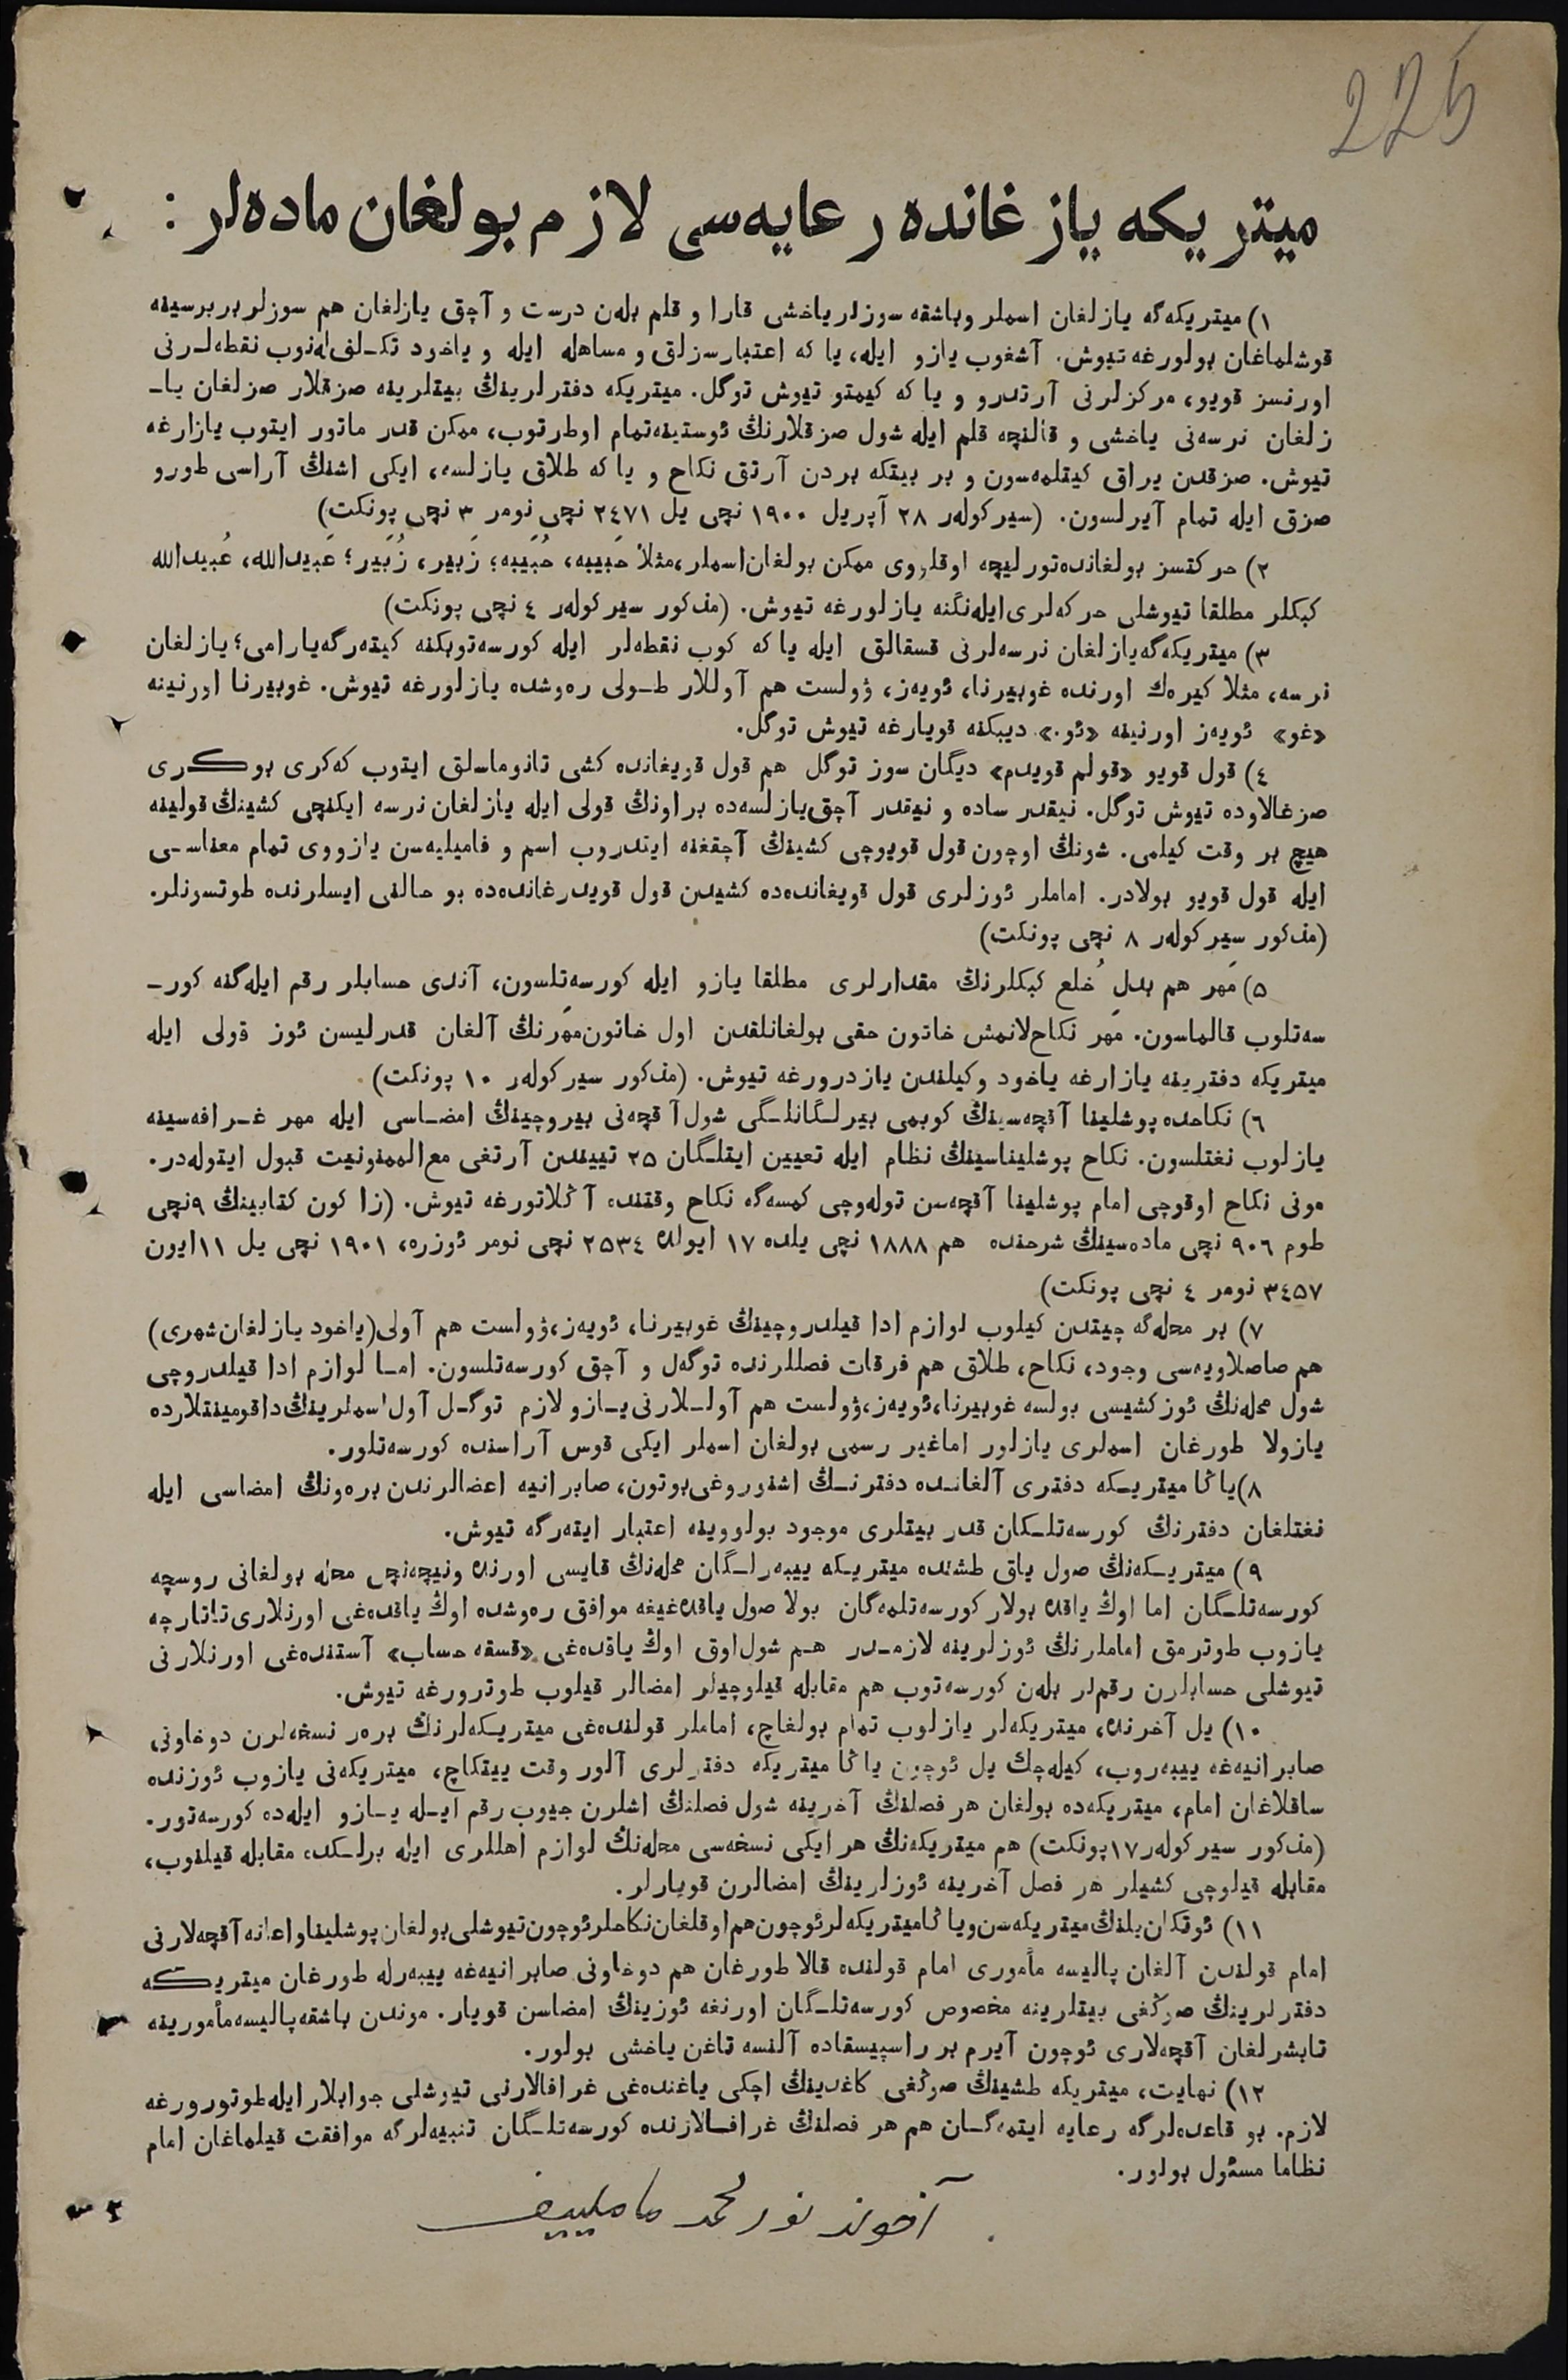 225
میتریکه یازغانده رعایه‌سی لازم بولغان ماده‌لر :
١) میتریکه‌گه یازلغان اسملر وباشقه سوزلر یاخشی قارا و قلم بله‌ن درست و آچق یازلغان هم سوزلر بر برسینه
قوشلماغان بولورغه تیوش. آشغوب یازو ایله، یا که اعتبارسزلق و مساهله ایله و یاخود تکـلف‌له‌نوب نقطه‌لـرنی
اورنسز قویو، مرکزلرنی آرتدرو و یا که کیمتو تیوش توگل. میتریکه دفترلرینڭ بیتلرینه صزقلار صزلغان یا-
زلغان نرسه‌نی یاخشی و قالنچه قلم ایله شول صزقلارنڭ ئوستینه‌تمام اوطرتوب، ممکن قدر ماتور ایتوب یازارغه
تیوش. صزقدن یراق کیتلمه‌سون و بر بیتکه بردن آرتق نکاح و یا که طلاق یازلسه، ایکی اشنڭ آراسی طورو
صزق ایله تمام آیرلسون. (سیرکولەر ٢٨ آپریل ١٩٠٠ نچی یل ٢٤٧١ نچی نومر ٣ نچی پونکت)
٢) حرکتسز بولغانده‌تورلیچه اوقلووی ممکن بولغان‌اسملر،مثلاً حَبیبه، حُبَیبه؛ زَبیر، زُبَیر؛ عَبیدالله، عُبیدالله
کبکلر مطلقا تیوشلی حرکه‌لری‌ایله‌نگنه یازلورغه تیوش. (مذکور سیرکولەر ٤ نچی پونکت)
٣) میتریکه‌گه‌یازلغان نرسه‌لرنی قسقالق ایله یا که کوب نقطه‌لر ایله کورسه‌توبکنه کیته‌رگه‌یارامی؛ یازلغان
نرسه، مثلا کیره‌ك اورنده غوبیرنا، ئویه‌ز، ۋولست هم آوللار طـولی ره‌وشده یازلورغه تیوش. غوبیرنا اورنینه
«غو» ئویه‌ز اورنینه «ئو.» دیبکنه قویارغه تیوش توگل.
٤) قول قویو «قولم قویدم» دیگان سوز توگل هم قول قویغانده کشی تانوماسلق ایتوب که‌کری بوکـری
صزغالاوده تیوش توگل. نیقدر ساده و نیقدر آچق‌یازلسه‌ده براونڭ قولی ایله یازلغان نرسه ایکنچی کشینڭ قولینه
هیچ بر وقت کیلمی. شونڭ اوچون قول قویوچی کشینڭ آچقغنه ایتدروب اسم و فامیلیه‌سن یازووی تمام معناسـی
ایله قول قویو بولادر. اماملر ئوزلری قول قویغانده‌ده کشیدن قول قویدرغانده‌ده بو حالنی ایسلرنده طوتسونلر.
(مذکور سیرکولەر ٨ نچی پونکت)
٥) مَهر هم بدل خُلع کبکلرنڭ مقدارلری مطلقا یازو ایله کورسه‌تلسون، آندی حسابلر رقم ایله‌گنه کور-
سه‌تلوب قالماسون. مَهر نکاح‌لانمش خاتون حقی بولغانلقدن اول خاتون‌مَهرنڭ آلغان قدرلیسن ئوز قولی ایله
میتریکه دفترینه یازارغه یاخود وکیلندن یازدرورغه تیوش. (مذکور سیرکولەر ١٠ پونکت)
٦) نکاحده پوشلینا آقچه‌سینڭ کوبمی بیرلـگانلـگی شول آقچه‌نی بیروچینڭ امضـاسی ایله مهر غـرافه‌سینه
یازلوب نغتلسون. نکاح پوشلیناسینڭ نظام ایله تعیین ایتلـگان ٢٥ تییندن آرتغی مع‌الممنونیت قبول ایتوله‌در.
مونی نکاح اوقوچی امام پوشلینا آقچه‌سن توله‌وچی کمسه‌گه نکاح وقتنده آڭلاتورغه تیوش. (زا کون کتابینڭ ٩نچی
طوم ٩٠٦ نچی ماده‌سینڭ شرحنده هم ١٨٨٨ نچی یلده ١٧ ایولده ٢٥٣٤ نچی نومر ئوزره، ١٩٠١ نچی یل ١١ ایون
٣٤٥٧ نومر ٤ نچی پونکت)
٧) بر محله‌گه چیتدن کیلوب لوازم ادا قیلدروچینڭ غوبیرنا، ئویه‌ز،ۋولست هم آولی(یاخود یازلغان‌شهری)
هم صاصلاویه‌سی وجود، نکاح، طلاق هم فرقات فصللرنده توگه‌ل و آچق کورسه‌تلسون. امـا لوازم ادا قیلدروچی
شول محله‌نڭ ئوزکشیسی بولسه غوبیرنا،ئویه‌ز،ۋولست هم آولـلارنی یـازو لازم توگـل آول‌اسملرینڭ‌داقومینتلارده
یازولا طورغان اسملری یازلور اماغیر رسمی بولغان اسملر ایکی قوس آراسنده کورسه‌تلور.
٨) یاڭا میتریـکه دفتری آلغانـده دفترنـڭ اشنوروغی‌بوتون، صابرانیه اعضالرندن بره‌ونڭ امضاسی ایله
نغتلغان دفترنڭ کورسه‌تلـکان قدر بیتلری موجود بولووینه اعتبار ایته‌رگه تیوش.
٩) میتریـکه‌نڭ صول یاق طشنده میتریـکه ییبه‌رلـگان محله‌نڭ قایسی اورنده ونیچه‌نچی محله بولغانی روسچه
کورسه‌تلـگان اما اوڭ یاقده بولار کورسه‌تلمه‌گان بولا صول یاقده‌غیغه موافق ره‌وشده اوڭ یاقده‌غی اورنلاری‌تاتارچه
یازوب طوترمق اماملرنڭ ئوزلرینه لازمـدر هـم شول‌اوق اوڭ یاقده‌غی «قسقه حساب» آستنده‌غی اورنلارنی
تیوشلی حسابلرن رقم‌لر بله‌ن کورسه‌توب هم مقابله قیلوچیلر امضالر قیلوب طوترورغه تیوش.
١٠) یل آخرنده، میتریکه‌لر یازلوب تمام بولغاچ، اماملر قولنده‌غی میتریـکه‌لرنڭ بره‌ر نسخه‌لرن دوخاونی
صابرانیه‌غه ییبه‌روب، کیله‌چك یل ئوچون یاڭا میتریکه دفترلری آلور وقت ییتکاچ، میتریکه‌نی یازوب ئوزنده
ساقلاغان امام، میتریکه‌ده بولغان هر فصلنڭ آخرینه شول فصلنڭ اشلرن جیوب رقم ایـله یـازو ایله‌ده کورسه‌تور.
(مذکور سیرکولەر ١٧پونکت) هم میتریکه‌نڭ هر ایکی نسخه‌سی محله‌نڭ لوازم اهللری ایله برلـکده مقابله قیلنوب،
مقابله قیلوچی کشیلر هر فصل آخرینه ئوزلرینڭ امضالرن قویارلر.
١١) ئوتکان‌یلنڭ‌میتریکه‌سن‌ویاڭامیتریکه‌لرئوچون‌هم‌اوقلغان‌نکاحلرئوچون‌تیوشلی‌بولغان‌پوشلیناواعانه‌آقچه‌لارنی
امام قولندن آلغان پالیسه مأموری امام قولنده قالا طورغان هم دوخاونی صابرانیه‌غه ییبه‌رله طورغان میتریـکه
دفترلرینڭ صوڭغی بیتلرینه مخصوص کورسه‌تلـگان اورنغه ئوزینڭ امضاسن قویار. موندن باشقه‌پالیسه‌مأمورینه
تابشرلغان آقچه‌لاری ئوچون آیرم بر راسپیسقاده آلنسه تاغن یاخشی بولور.
١٢) نهایت، میتریکه طشینڭ صوڭغی کاغدینڭ اچکی یاغنده‌غی غرافالارنی تیوشلی جوابلار ایله‌طوتورورغه
لازم. بو قاعده‌لرگه رعایه ایتمه‌گـان هم هر فصلنڭ غرافـالارنده کورسه‌تلـگان تنبیه‌لرگه موافقت قیلماغان امام
نظاما مسئول بولور.
آخوند نورمحمد ماملییف